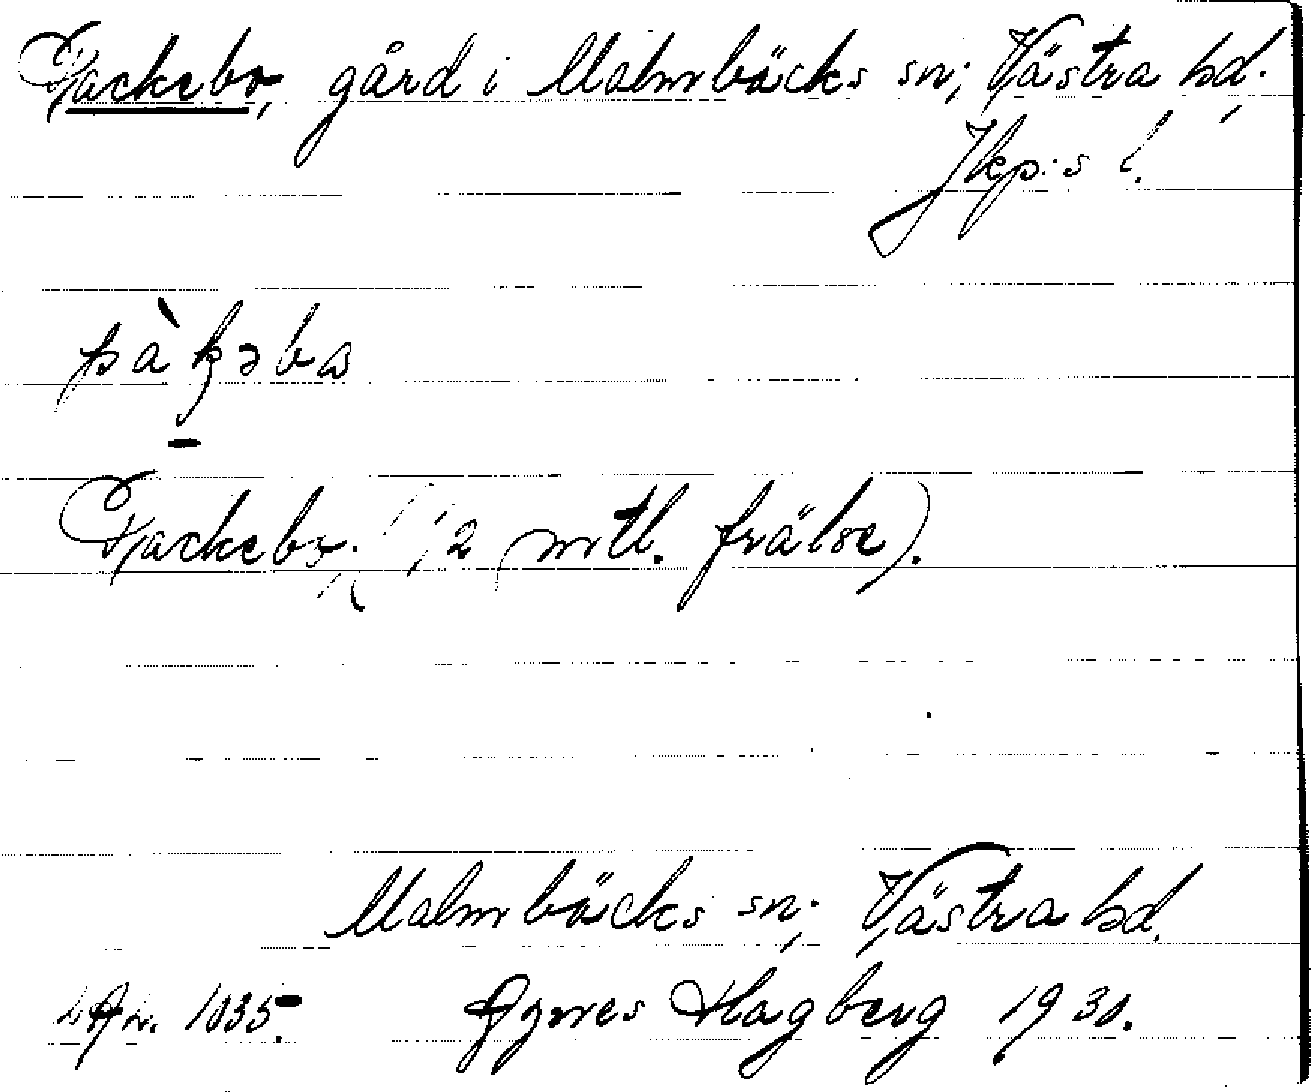 Packebo, gård i Malmbäcks sn; Västra hd.,
Jkp:s l.
pàkəbω
Packebo, (1/2 mtl. frälse).
Malmbäcks sn; Västra hd.
1035. Agnes Hagberg 1930.